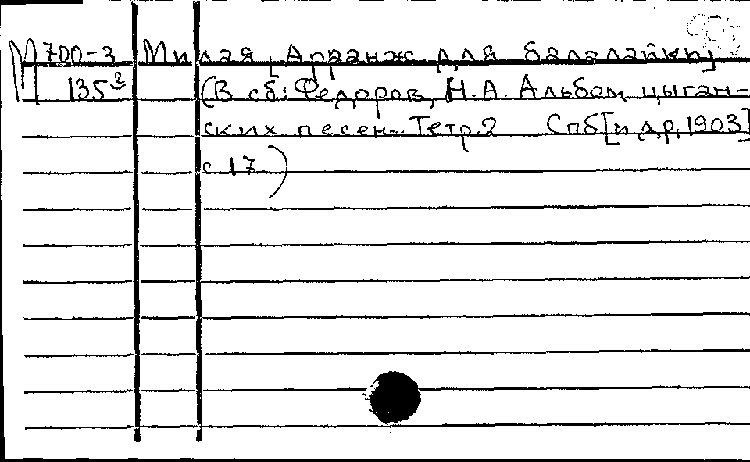 М 700-3 Милая [Аранж. для балалайки]
135² (В сб.: Федоров, Н.А. Альбом цыган-
ских песен. Тетр. 2 Спб [и др, 1903]
с 17)